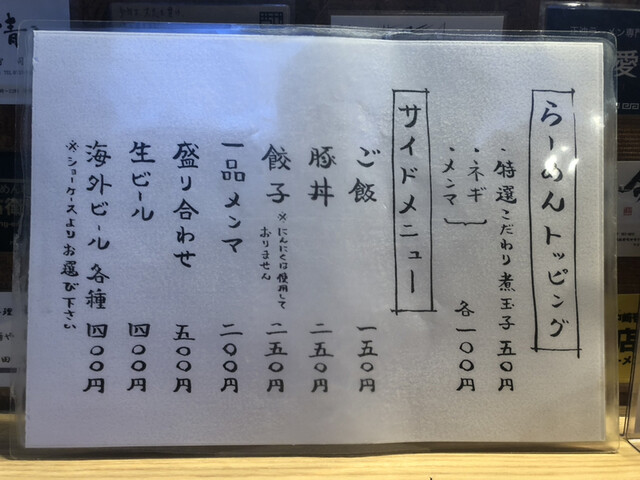 らーめんトッピング
・特選こだわり煮玉子 五〇円
・ネギ
・メンマ
各一〇〇円
サイドメニュー
ご飯 一五〇円
豚丼 二五〇円
餃子 ※にんにくは使用して
おりません 二五〇円
一品メンマ 二〇〇円
盛り合わせ 五〇〇円
生ビール 四〇〇円
海外ビール各種 四〇〇円
※ショーケースよりお選び下さい